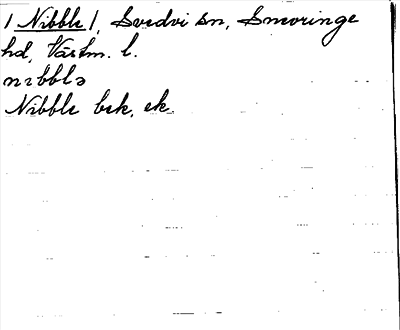 / Nibble /, Svedvi sn, Snevringe
hd, Västm. l.
nɪbblə
Nibble bsk, ek.